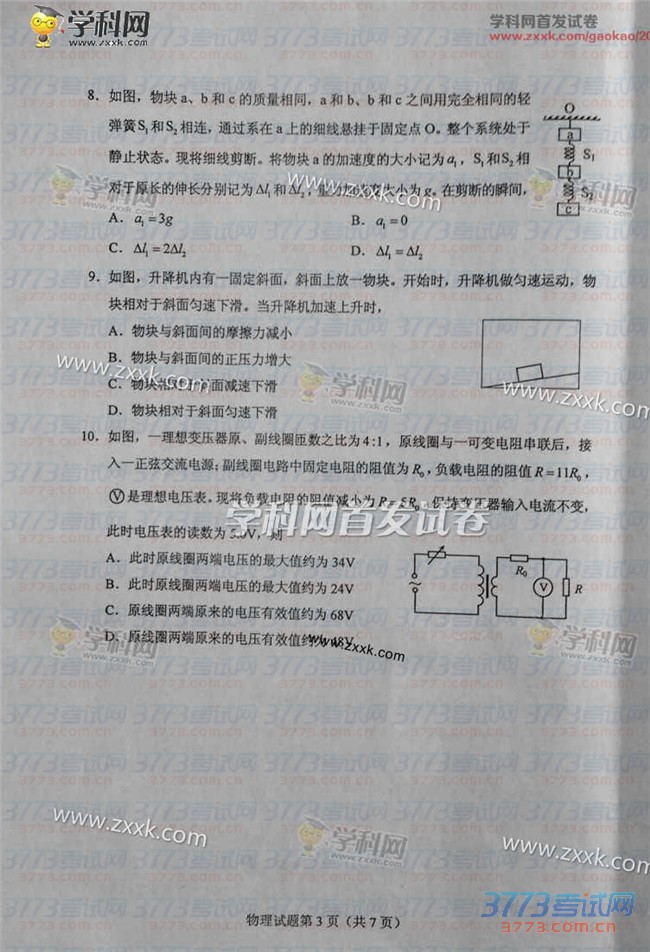 学科网
zxxk.com
学科网首发试卷
www.zxxk.com/gaokao/20
8．如图，物块 a、b 和 c 的质量相同，a 和 b、b 和 c 之间用完全相同的轻
弹簧S₁和S₂相连，通过系在 a 上的细线悬挂于固定点 O。整个系统处于
静止状态。现将细线剪断。将物块 a 的加速度的大小记为 a₁，S₁和S₂相
对于原长的伸长分别记为 Δl₁ 和 Δl₂，重力加速度大小为 g。在剪断的瞬间，
O
a
S₁
b
S₂
c
A．a₁=3g
B．a₁=0
C．Δl₁=2Δl₂
D．Δl₁=Δl₂
9．如图，升降机内有一固定斜面，斜面上放一物块。开始时，升降机做匀速运动，物
块相对于斜面匀速下滑。当升降机加速上升时，
A．物块与斜面间的摩擦力减小
B．物块与斜面间的正压力增大
C．物块相对于斜面减速下滑
D．物块相对于斜面匀速下滑
www.zxxk.com
学科网
www.zxxk.com
10．如图，一理想变压器原、副线圈匝数之比为 4:1，原线圈与一可变电阻串联后，接
入一正弦交流电源；副线圈电路中固定电阻的阻值为 R₀，负载电阻的阻值 R=11R₀，
Ⓥ是理想电压表。现将负载电阻的阻值减小为 R=5R₀，保持变压器输入电流不变，
学科网首发试卷
此时电压表的读数为 5.0V，则
A．此时原线圈两端电压的最大值约为 34V
B．此时原线圈两端电压的最大值约为 24V
C．原线圈两端原来的电压有效值约为 68V
D．原线圈两端原来的电压有效值约为 48V
R₀
V
R
www.zxxk.com
学科网
学科网
www.zxxk.com
学科网
www.zxxk.com
物理试题第 3 页（共 7 页）
3773考试网
3773.com.cn